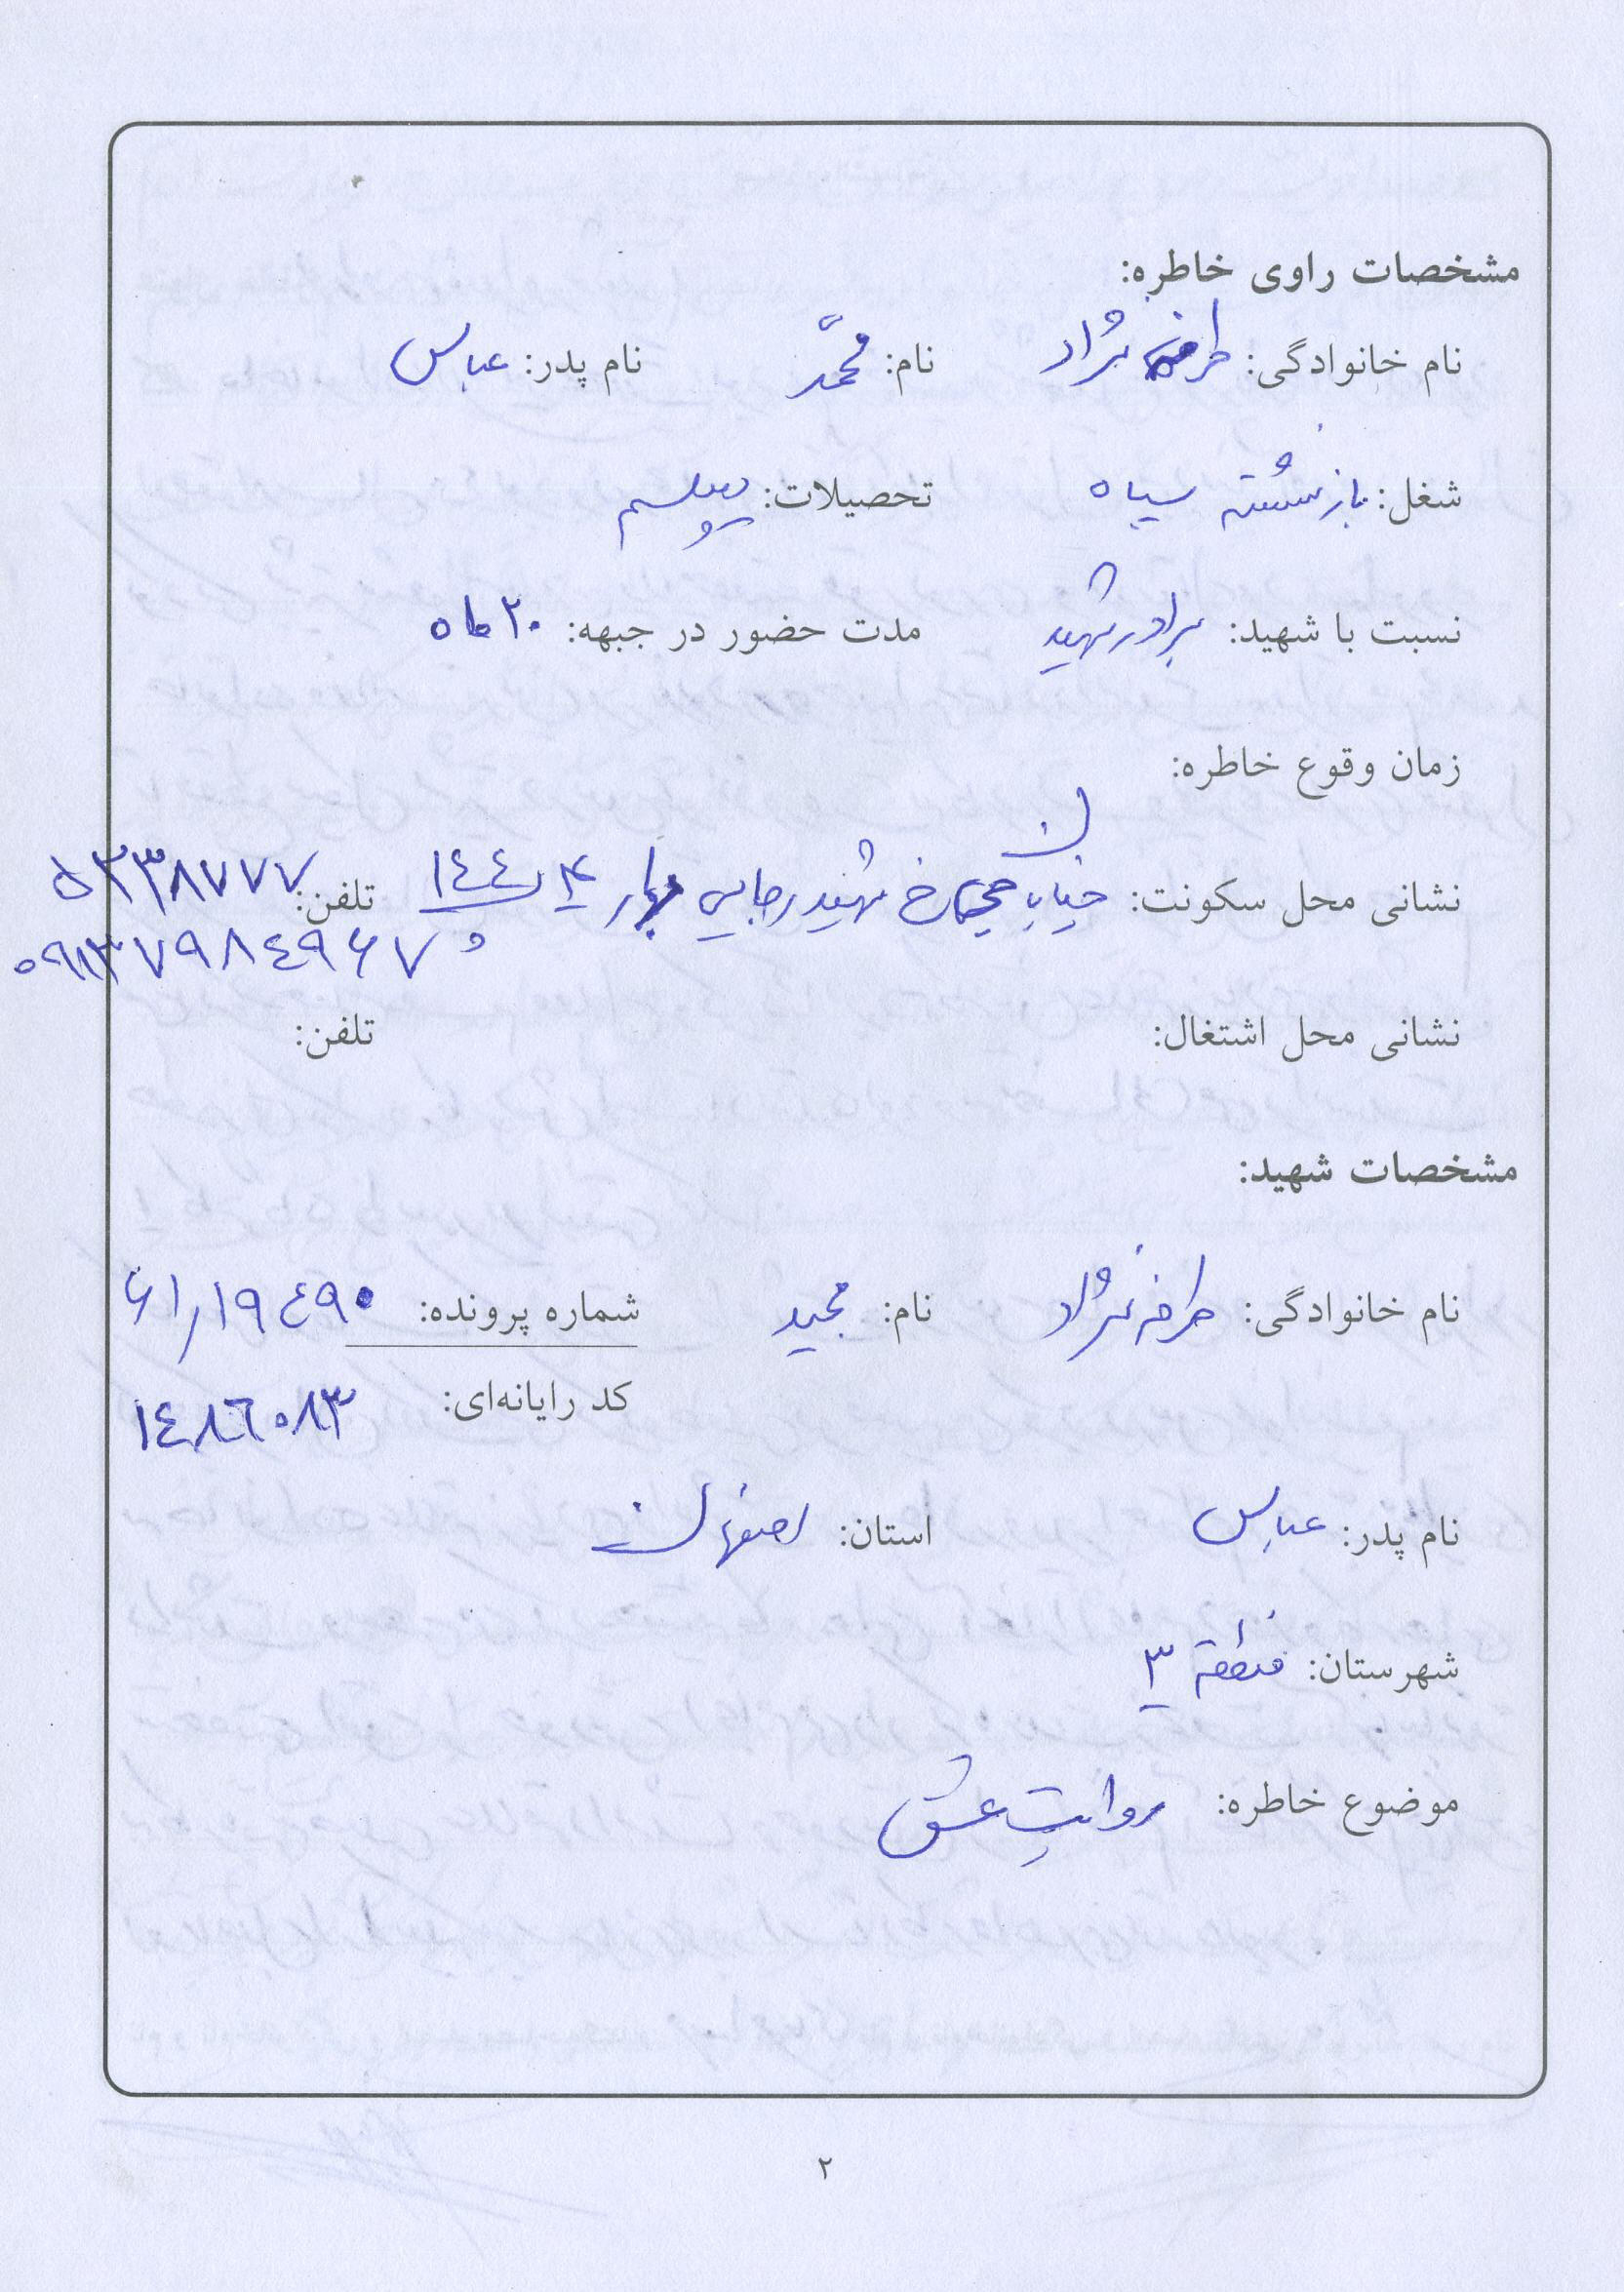 مشخصات راوی خاطره:
نام خانوادگی: طرفه نژاد نام: محمّد نام پدر: عباس
شغل: بازنشسته سپاه تحصیلات: دیپلم
نسبت با شهید: برادر شهید مدت حضور در جبهه: ۲۰ ماه
زمان وقوع خاطره:
نشانی محل سکونت: خیابان شهید رجایی ۱۴۴ تلفن: ۵۲۳۸۷۷۷
و ۰۹۱۳۷۹۸۴۹۶۷
نشانی محل اشتغال: تلفن:
مشخصات شهید:
نام خانوادگی: طرفه نژاد نام: مجید شماره پرونده: ۶۱/۱۹۴۹۰
کد رایانه‌ای: ۱۴۸۶۰۸۳
نام پدر: عباس استان: اصفهان
شهرستان: منطقه ۳
موضوع خاطره: روایت عشق
۲